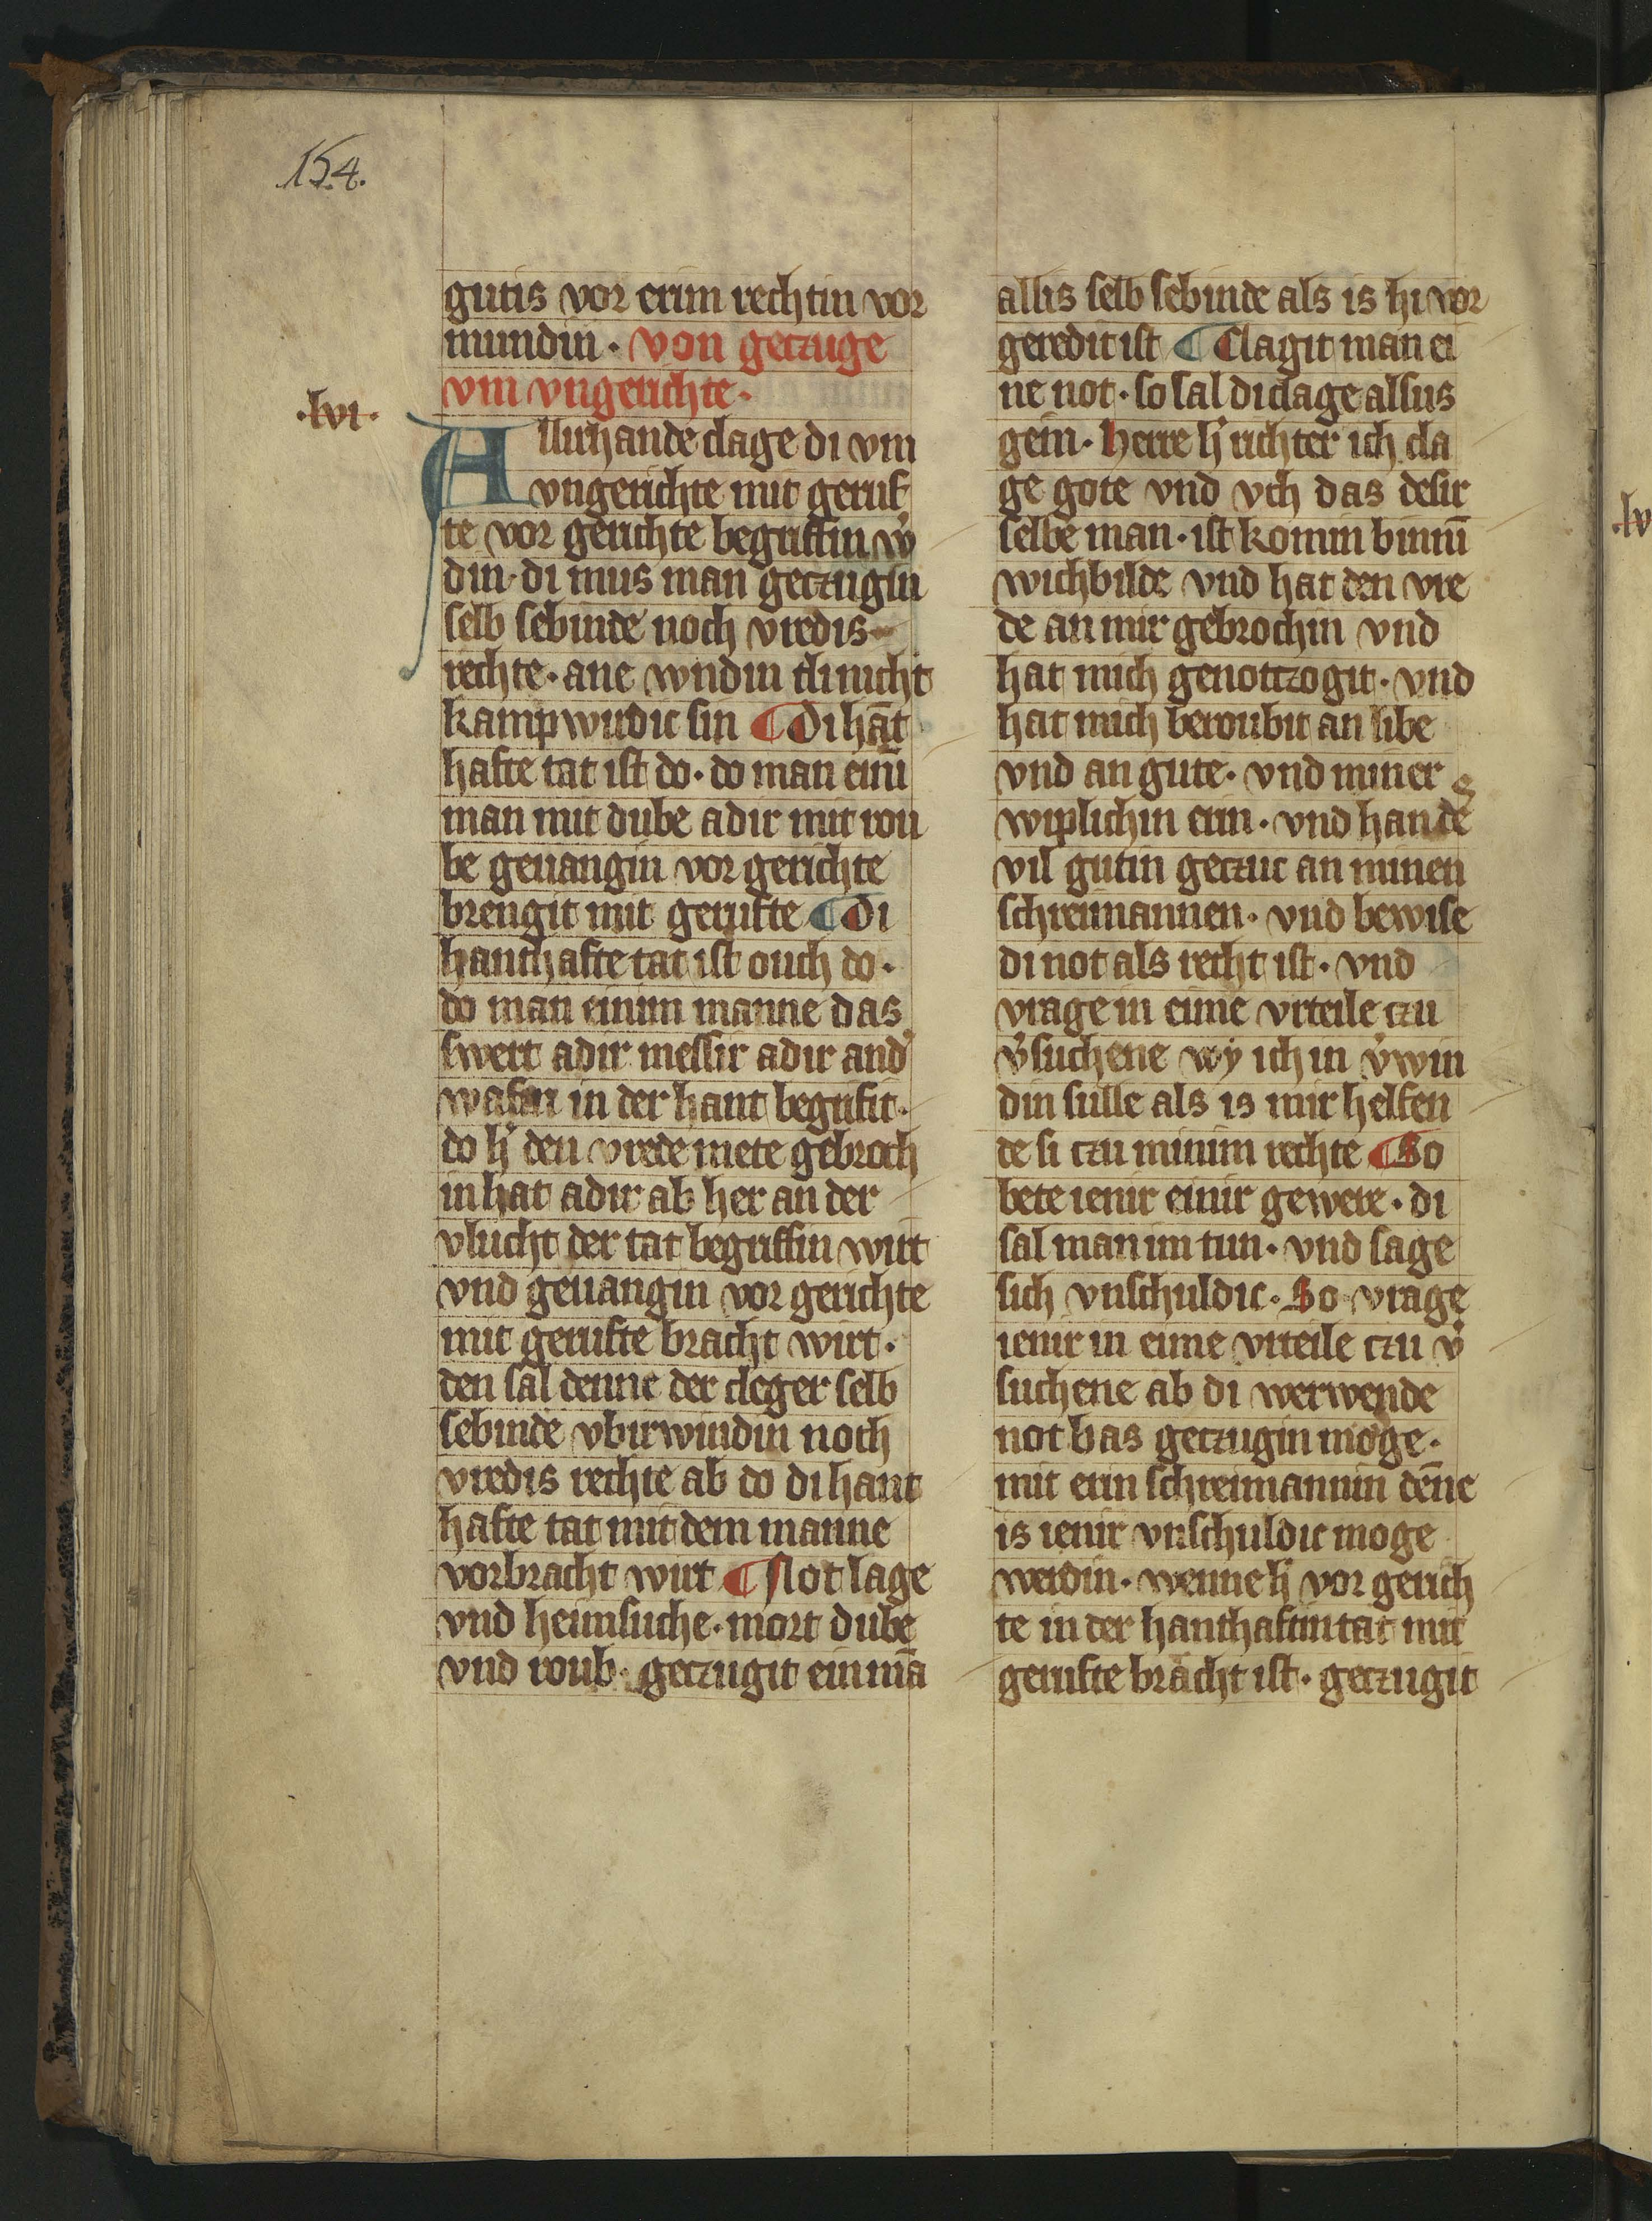 154.
gutis vor erim rechtin vor
mundin · von geczuge
vm vngerichte ·
·lvi·
Allirhande clage di vm
vngerichte mit geruf
te vor gerichte begriffin w͛
din · di mus man geczugin
selb sebinde noch vredis
rechte · ane wndin di nicht
kampwirdic sin ¶ Di hāt
hafte tat ist do · do man einī
man mit dube adir mit rou
be geuangin vor gerichte
brengit mit gerufte ¶ Di
hanthafte tat ist ouch do ·
do man einim manne das
swert adir messir adir and͛
wafin in der hant begrifit ·
do h͛ den vrede mete gebroch
in hat adir ab her an der
vlucht der tat begriffin wirt
vnd geuangin vor gerichte
mit gerufte bracht wirt ·
den sal denne der cleger selb
sebinde vbirwindin noch
vredis rechte ab do di hant
hafte tat mit dem manne
vorbracht wirt ¶ Not lage
vnd heimsuche · mort dube
vnd roub · geczugit ein mā
allis selb sebinde als is hi vor
geredit ist ¶ Clagit man ei
ne not · so sal di clage alsus
gein · Herre h͛ richter ich cla
ge gote vnd vch das desir
selbe man · ist komin binnī
wichbilde vnd hat den vre
de an mir gebrochin vnd
hat mich genotczogit · vnd
hat mich beroubit an libe
vnd an gute · vnd miner
wiplichin erin · vnd han de
vil gutin geczuc an minen
schreimannen · vnd bewise
di not als recht ist · vnd
vrage in eime vrteile czu
v͛suchene wy ich in v͛win
din sulle als is mir helfen
de si czu minim rechte ¶ So
bete ienir einir gewere · di
sal man im tun · vnd sage
sich vnschuldic · So vrage
ienir in eime vrteile czu v͛
suchene ab di werwende
not bas geczugin moge ·
mit erin schreimannin dēne
is ienir vnschuldic moge
werdin · wenne h͛ vor gerich
te in der hanthaftin tat mit
gerufte bracht ist · geczugit
·lv